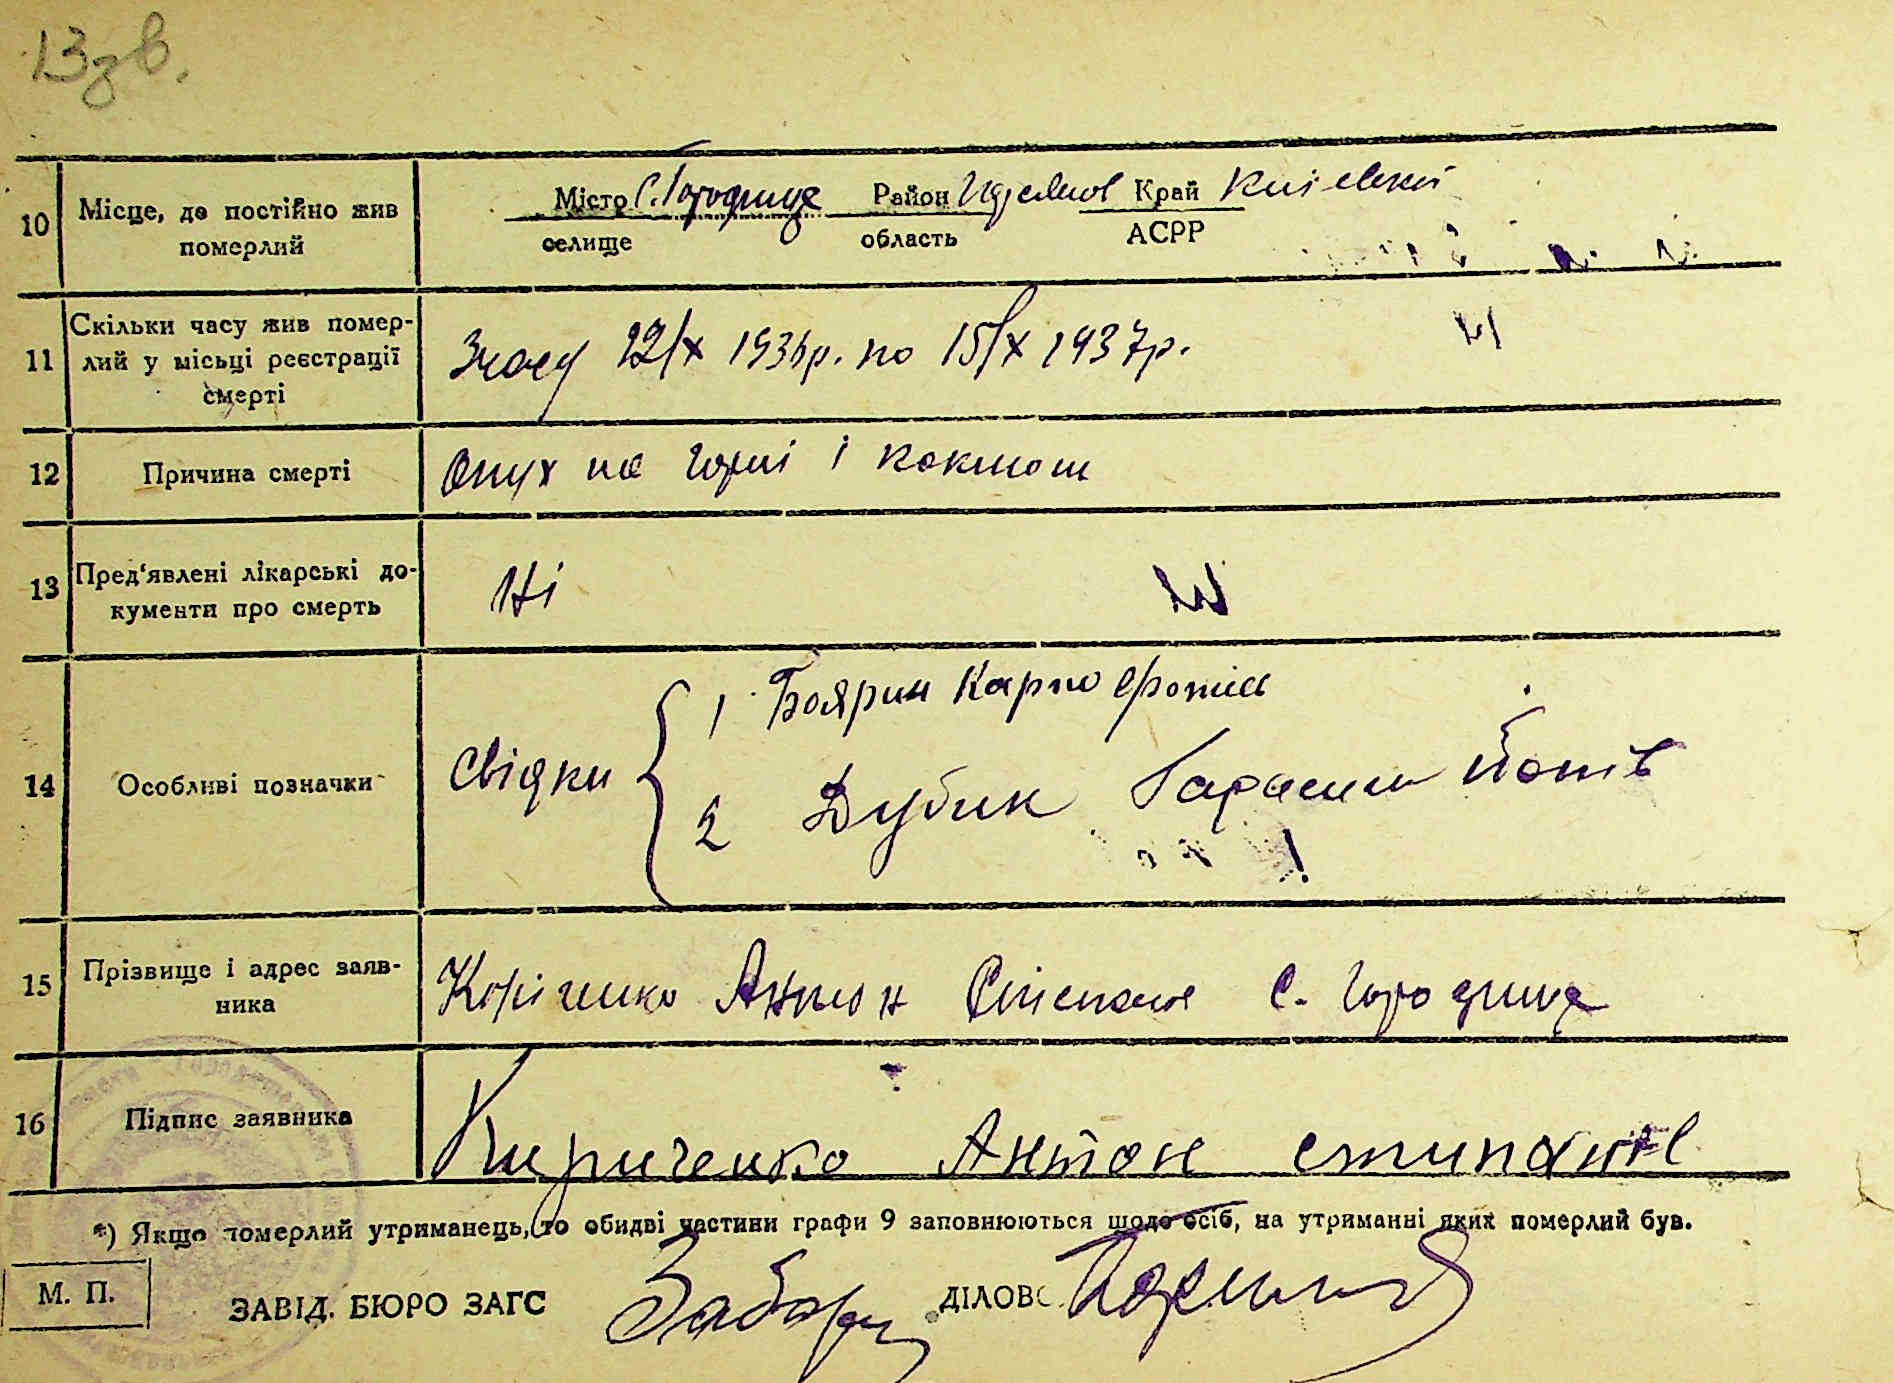 13зв.
10 Місце, де постійно жив померлий
Місто С. Городище Район Край Київський
селище область АСРР
11 Скільки часу жив помер-
лий у місьці реєстрації
смерті
Зчасу 22/X 1936р. по 15/X 1937р.
12 Причина смерті
Опух на горлі і коклюш
13 Пред'явлені лікарські до-
кументи про смерть
Ні
14 Особливі позначки
Свідки
1 Боярин Карпо
2 Дубик Гарасим
15 Прізвище і адрес заяв-
ника
Кіріченко Антон С. Городище
16 Підпис заявника
Кириченко Антон
*) Якщо померлий утриманець, то обидві частини графи 9 заповнюються щодо осіб, на утриманні яких померлий був.
М. П.
ЗАВІД. БЮРО ЗАГС
ДІЛОВ